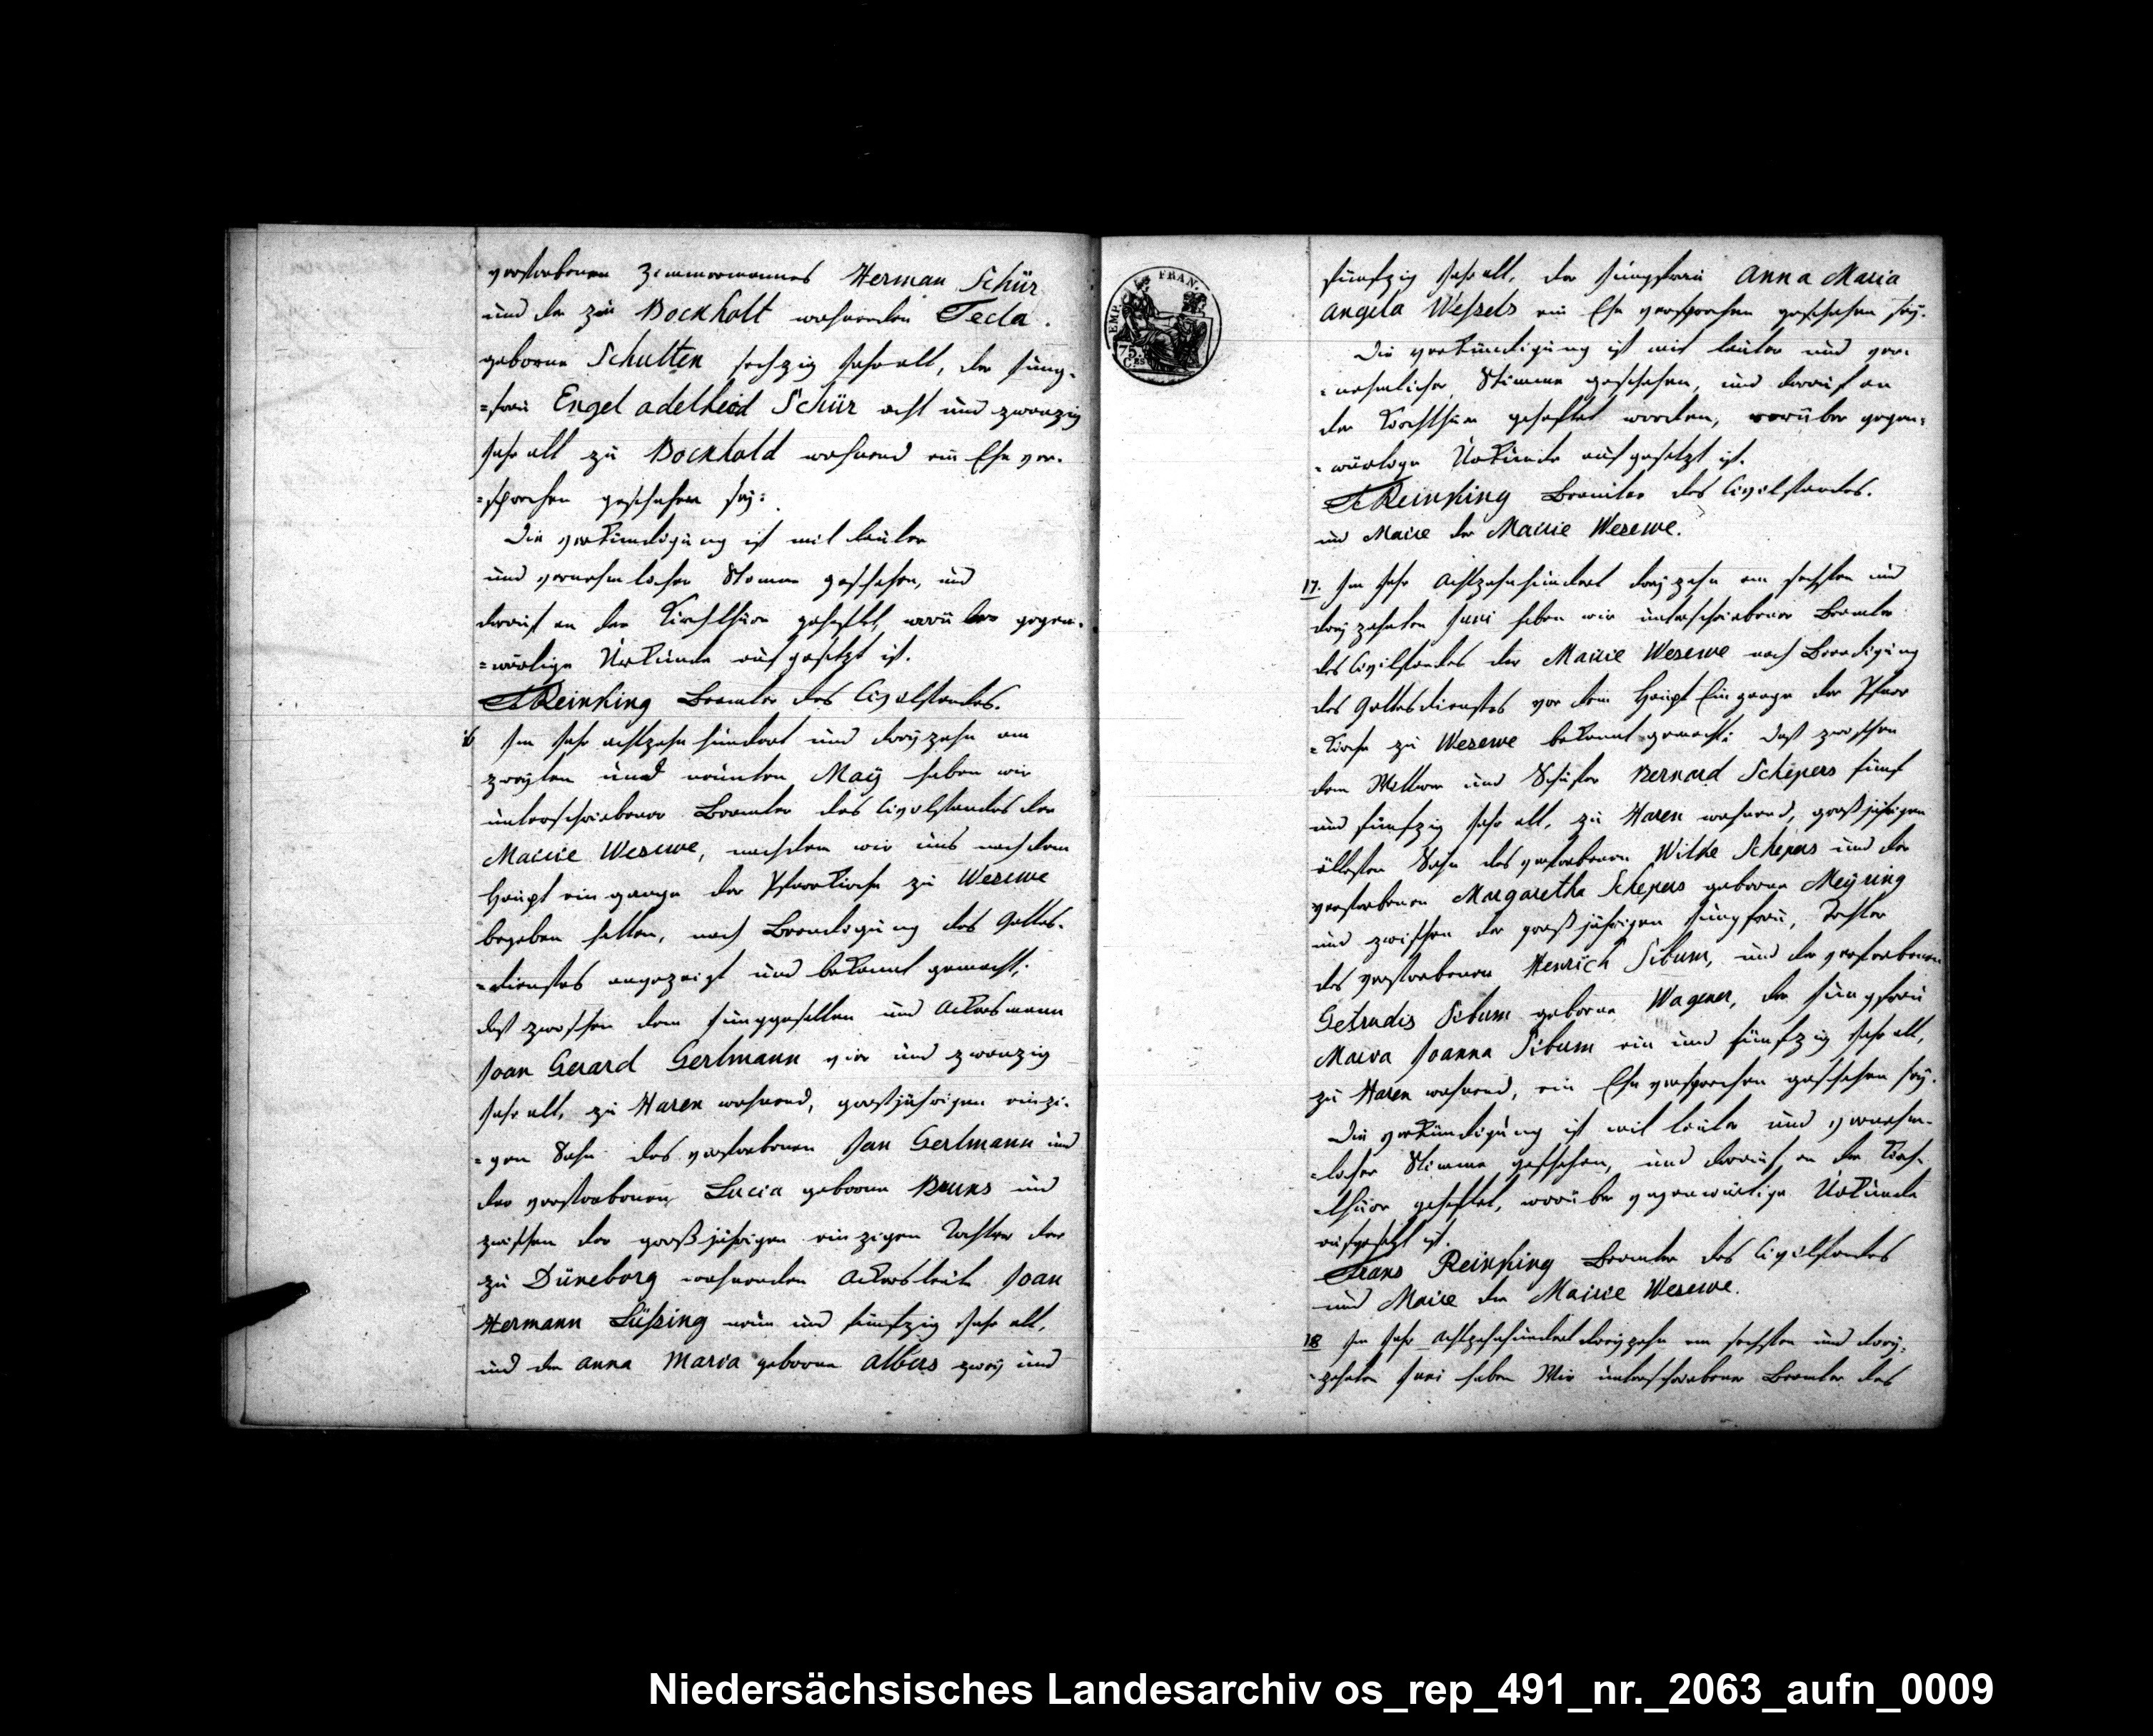 verstorbenen Zimmermannes Herman Schür
und der zu Bockholt wohnenden Tecla
geborne Schulten sechzig Jahr alt, der Jung-
=frau Engel adelheid Schür acht und zwanzig
Jahr alt zu Bockhold wohnend ein Ehe ver-
=sprechen geschehen sey:
Die verkündigung ist mit lauter
und vernehmlicher Stimme geschehen, und
darauf an der Kirchthüre geheftet, worüber gegen-
=wärtige Urkunde aufgesetzt ist.
F Reinking Beamter des Civilstandes.
16 Im Jahr achtzehn hundert und dreyzehn am
zweyten und neunten May haben wir
unterschriebener Beamter des Civilstandes der
Mairie Wesewe, nachdem wir uns nach dem
Haupt eingange der Pfarrkirche zu Wesewe
begeben hatten, nach Beendigung des Gottes-
=dienstes angezeigt und bekannt gemacht,
daß zwischen dem Junggesellen und Ackersmann
Joan Gerard Gerlmann vier und zwanzig
Jahr alt, zu Haren wohnend, großjährigen einzi-
=gen Sohn des verstorbenen Jan Gerlmann und
der verstorbenen Lucia geborne Bruns und
zwischen der großjährigen einzigen Tochter der
zu Düneborg wohnenden Ackersleute Joan
Hermann Lüßing neun und fünfzig Jahr alt,
und der anna Maria geborne Albers zwey und
EMP. FRAN.
75. CES
fünfzig Jahr alt, der Jungfrau Anna Maria
Angela Weßels ein Ehe versprechen geschehen sey.
Die verkündigung ist mit lauter und ver-
=nehmlicher Stimme geschehen, und darauf an
der Kirchthüre geheftet worden, worüber gegen-
=wärtige Urkunde aufgesetzt ist.
F Reinking Beamter des Civilstandes.
und Maire der Mairie Wesewe.
17. Im Jahr Achtzehnhundert dreyzehn am sechsten und
dreyzehnten Juni haben wir unterschriebener Beamter
des Civilstandes der Mairie Wesewe nach Beendigung
des Gottesdienstes vor dem Haupt Eingange der Pfarr
=kirche zu Wesewe bekannt gemacht: daß zwischen
dem Wittwer und Schuster Bernard Schepers fünf
und fünfzig Jahr alt, zu Haren wohnend, großjährigen
ältesten Sohn des verstorbenen Wilke Schepers und der
verstorbenen Margaretha Schepers geborne Meyring
und zwischen der großjährigen Jungfrau, Tochter
des verstorbenen Henrich Sibum, und der verstorbenen
Getrudis Sibum geborne Wagener, der Jungfrau
Maria Joanna Sibum ein und fünfzig Jahr alt,
zu Haren wohnend, ein Ehe versprechen geschehen sey.
Die verkündigung ist mit lauter und vernehm-
=licher Stimme geschehen, und darauf an der Kirch-
=thüre geheftet, worüber gegenwärtige Urkunde
aufgesetzt ist.
Frans Reinking Beamter des Civilstandes
und Maire der Mairie Wesewe.
18 Im Jahr Achtzehnhundert dreyzehn am sechsten und drey-
=zehnten Juni haben Wir unterschriebener Beamter des
Niedersächsisches Landesarchiv os_rep_491_nr._2063_aufn_0009